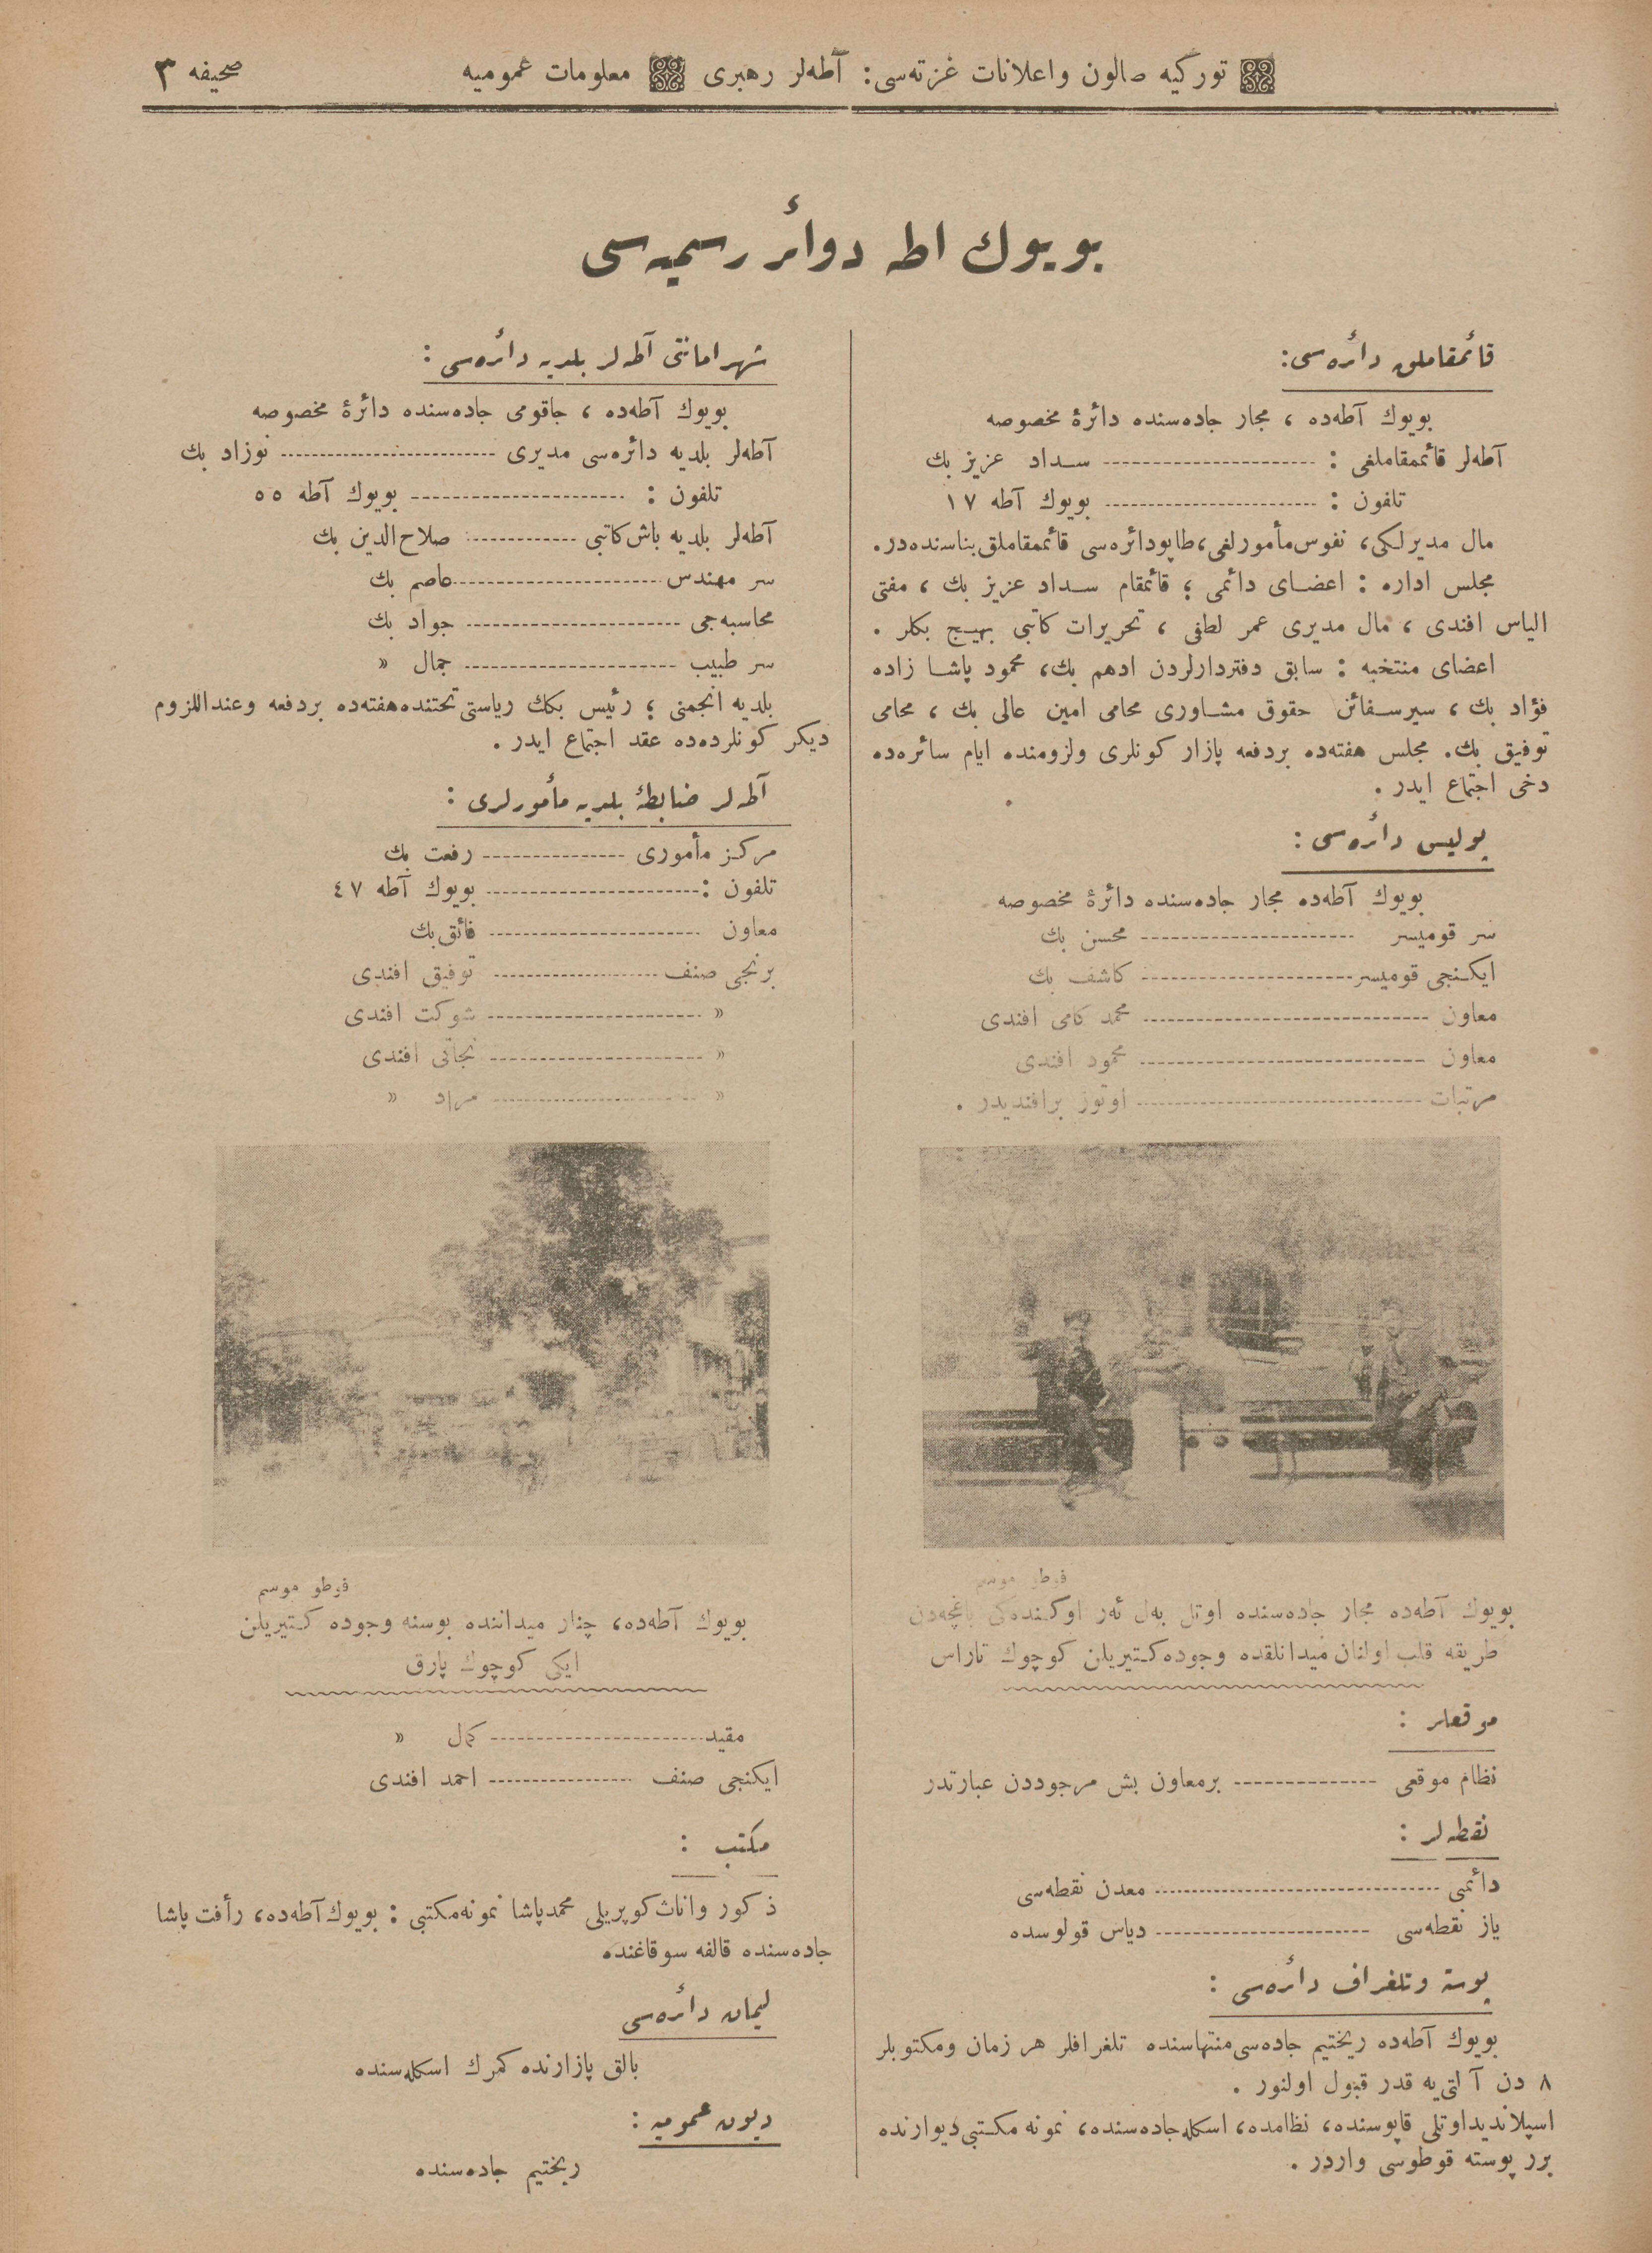 توركیه صالون واعلانات غزته‌سی: آطه‌لر رهبری معلومات عمومیه صحیفه ٣
بویوك اطه دوائر رسمیه‌سی
قائمقاملق دائره‌سی:
بویوك آطه‌ده ، مجار جاده‌سنده دائرهٔ مخصوصه
آطه‌لر قائممقاملغی : سداد عزیز بك
تلفون : بویوك آطه ١٧
مال مدیرلكی، نفوس مأمورلغی،طاپودائره‌سی قائممقاملق بناسنده‌در.
مجلس اداره : اعضای دائمی ؛ قائمقام سداد عزیز بك ، مفتی
الیاس افندی ، مال مدیری عمر لطفی ، تحریرات كاتبی بهیج بكلر .
اعضای منتخبه : سابق دفتردارلردن ادهم بك، محمود پاشا زاده
فؤاد بك ، سیرسفائن حقوق مشاوری محامی امین عالی بك ، محامی
توفیق بك. مجلس هفته‌ده بردفعه پازار كونلری ولزومنده ایام سائره‌ده
دخی اجتماع ایدر .
پولیس دائره‌سی :
بویوك آطه‌ده مجار جاده‌سنده دائرهٔ مخصوصه
سر قومیسر محسن بك
ایكنجی قومیسر كاشف بك
معاون محمد كامی افندی
معاون محمود افندی
مرتبات اوتوز برافندیدر .
فوطو موسم
بویوك آطه‌ده مجار جاده‌سنده اوتل به‌ل ئه‌ر اوكنده‌كی باغچه‌دن
طریقه قلب اولنان میدانلقده وجوده‌كتیریلن كوچوك تاراس
موقعلر :
نظام موقعی برمعاون بش مرجوددن عبارتدر
نقطه‌لر :
دائمی معدن نقطه‌سی
یاز نقطه‌سی دیاس قولوسده
پوسته وتلغراف دائره‌سی :
بویوك آطه‌ده ریختیم جاده‌سی‌منتهاسنده تلغرافلر هر زمان ومكتوبلر
٨ دن آلتی‌یه قدر قبول اولنور .
اسپلاندیداوتلی قاپوسنده، نظامده، اسكله‌جاده‌سنده، نمونه مكتبی دیوارنده
برر پوسته قوطوسی واردر .
شهرامانتی آطه‌لر بلدیه دائره‌سی :
بویوك آطه‌ده ، جاقومی جاده‌سنده دائرهٔ مخصوصه
آطه‌لر بلدیه دائره‌سی مدیری نوزاد بك
تلفون : بویوك آطه ٥٥
آطه‌لر بلدیه باش‌كاتبی صلاح‌الدین بك
سر مهندس عاصم بك
محاسبه‌جی جواد بك
سر طبیب جمال »
بلدیه انجمنی ؛ رئیس بكك ریاستی تحتنده‌هفته‌ده بردفعه وعنداللزوم
دیكر كونلرده‌ده عقد اجتماع ایدر .
آطه‌لر ضابطهٔ بلدیه مأمورلری :
مركز مأموری رفعت بك
تلفون : بویوك آطه ٤٧
معاون فائق‌بك
برنجی صنف توفیق افندی
» شوكت افندی
» نجاتی افندی
» مراد »
فوطو موسم
بویوك آطه‌ده، چنار میداننده بوسنه وجوده كتیریلن
ایكی كوچوك پارق
مقید كمال »
ایكنجی صنف احمد افندی
مكتب :
ذكور واناث كوپریلی محمدپاشا نمونه‌مكتبی : بویوك‌آطه‌ده، رأفت پاشا
جاده‌سنده قالفه سوقاغنده
لیمان دائره‌سی
بالق پازارنده كمرك اسكله‌سنده
دیون عمومیه :
ریختیم جاده‌سنده